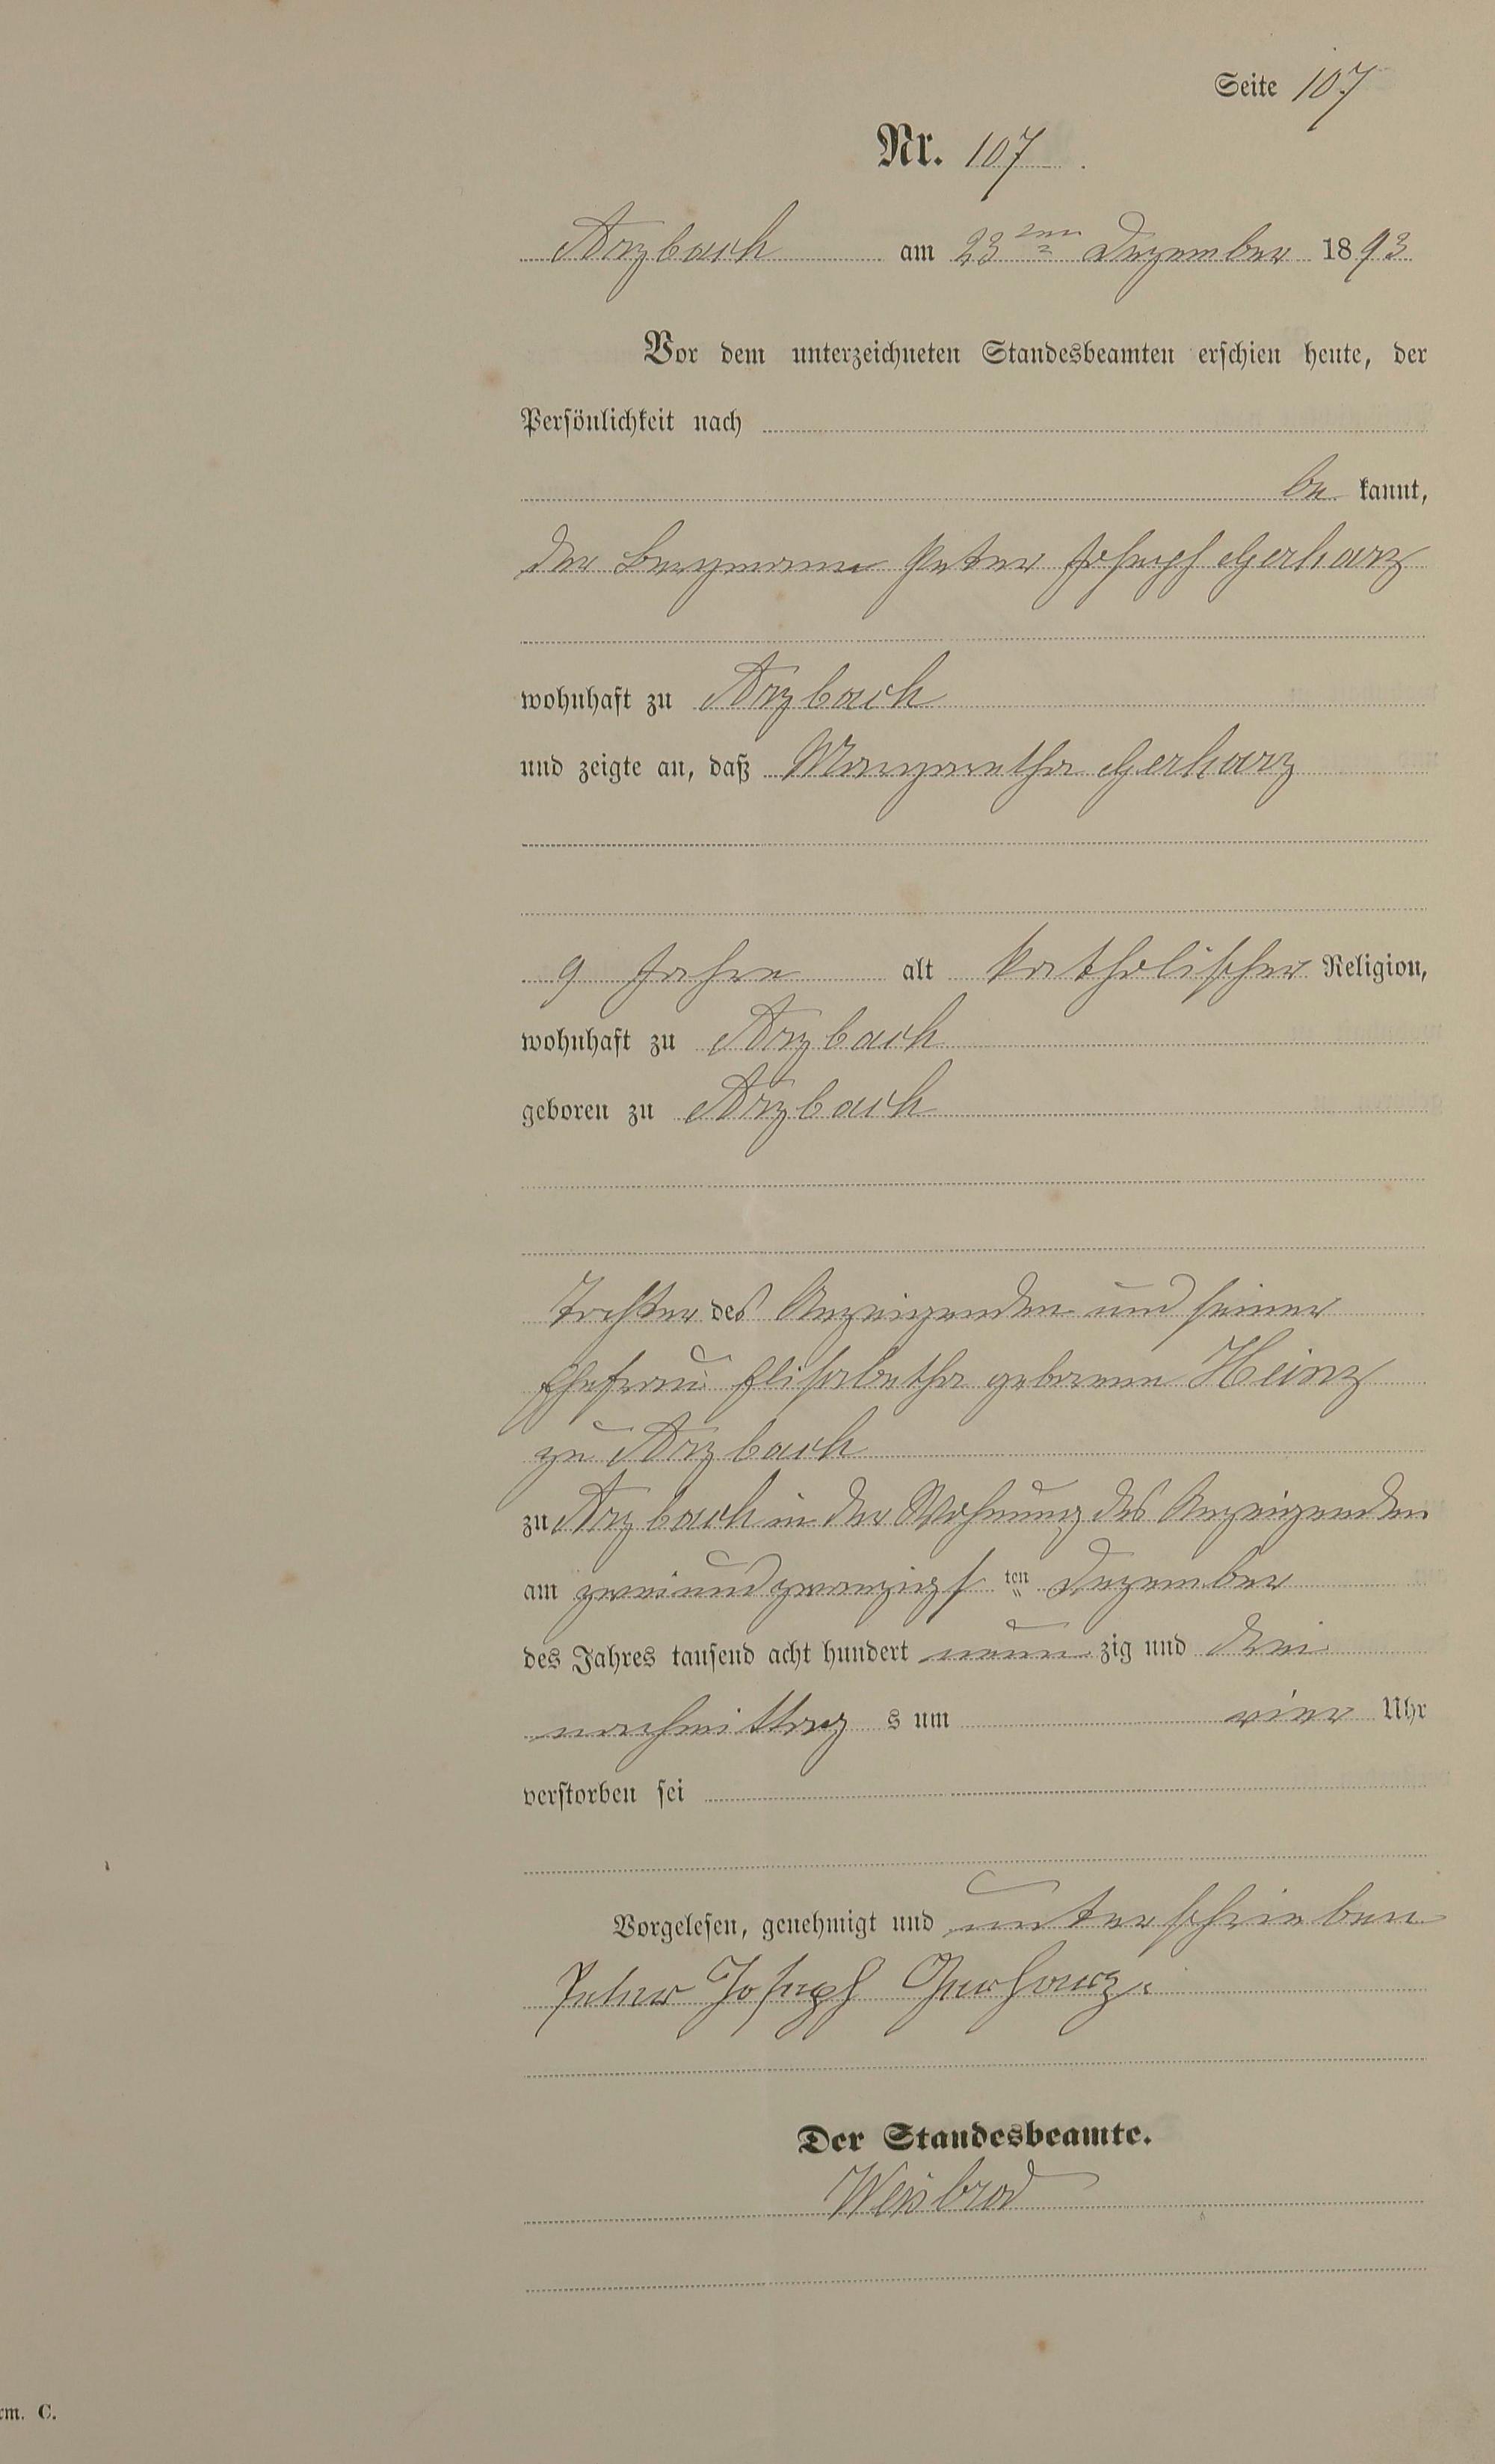 Seite 107
Nr. 107
Arzbach am 23ten Dezember 1893
Vor dem unterzeichneten Standesbeamten erschien heute, der
Persönlichkeit nach
be kannt,
der Bergmann Peter Joseph Gerharz
wohnhaft zu Arzbach
und zeigte an, daß Margaretha Gerharz
9 Jahre alt katholischer Religion,
wohnhaft zu Arzbach
geboren zu Arzbach
Tochter des Anzeigenden und seiner
Ehefrau Elisabetha geborene Heinz
zu Arzbach
zu Arzbach in der Wohnung des Anzeigenden
am zweiundzwanzigsten Dezember
des Jahres tausend acht hundert neun zig und drei
nachmittag s um vier Uhr
verstorben sei
Vorgelesen, genehmigt und unterschrieben
Peter Joseph Gerharz.
Der Standesbeamte.
Weisbrod
rm. C.